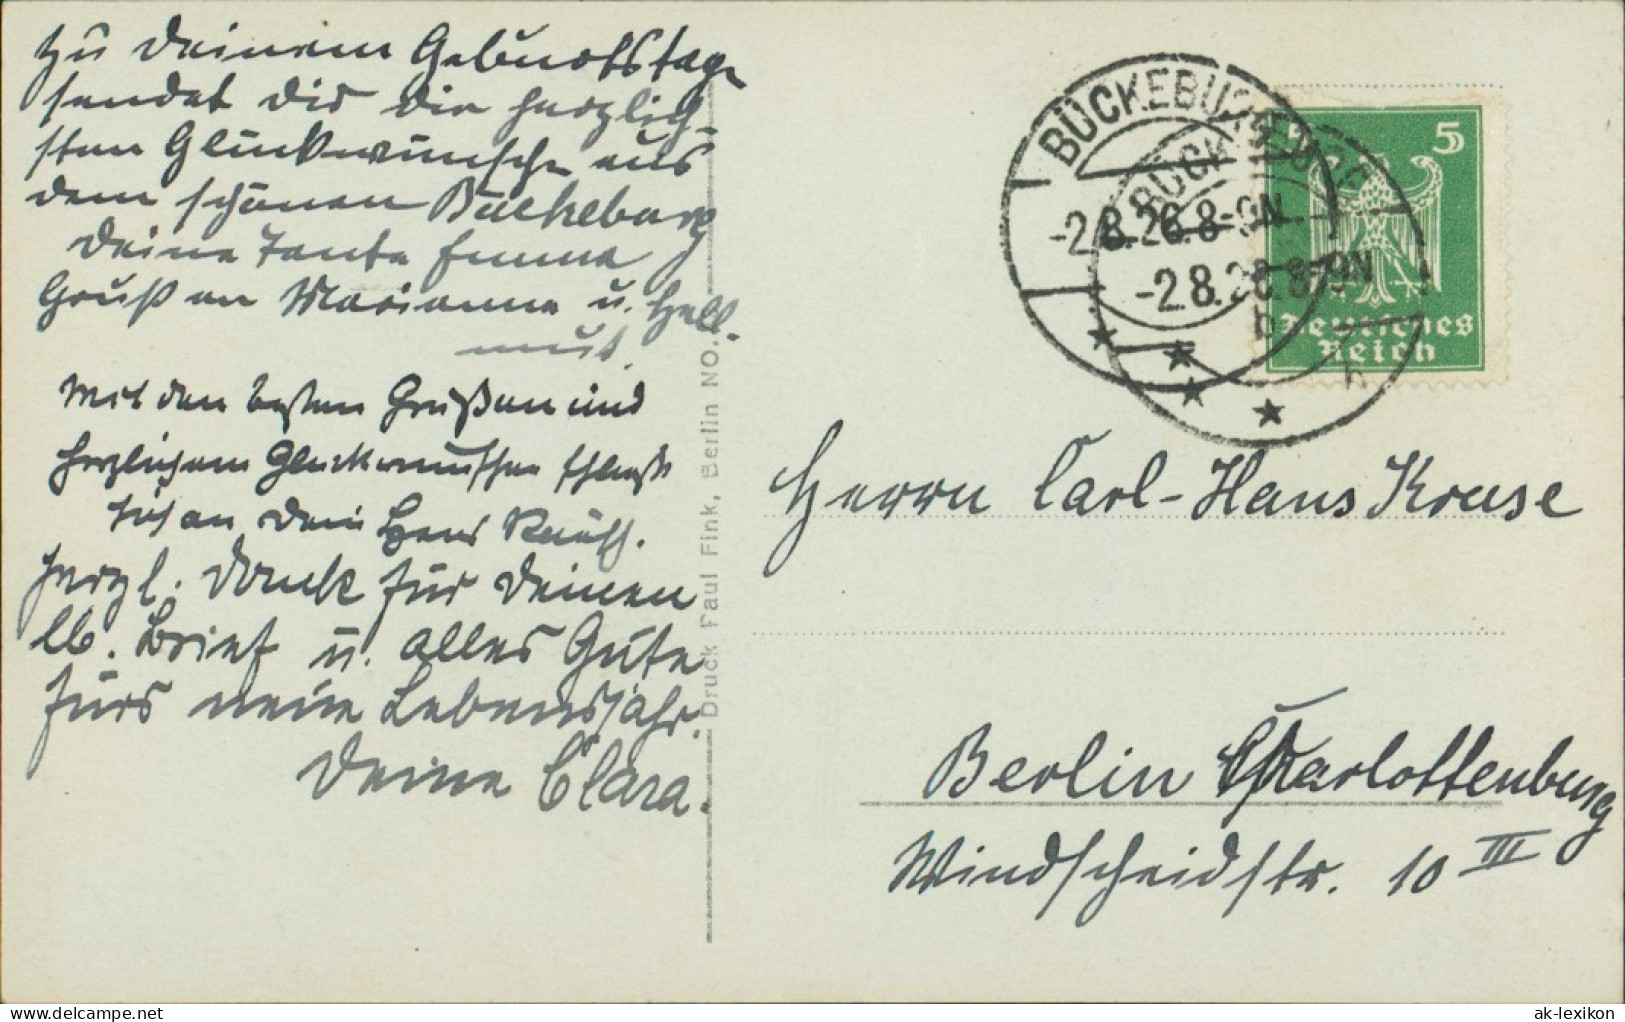 Zu Deinem Geburtstage
sendet Dir die herzlich-
sten Glückwünsche aus
dem schönen Bückeburg
Deine Tante Emma
Gruß an Marianne u. Hell-
mut.
Mit den besten Grüßen und
herzlichem Glückwunsche schließt
sich an Dein Hans Rausch.
Herzl. Dank für Deinen
lb. Brief u. alles Gute
fürs neue Lebensjahr.
Deine Clara.
Druck Paul Fink, Berlin NO.
BÜCKEBURG
-2.8.26.8-9N
BÜCKEBURG
-2.8.26.8-9N
b
5
Deutsches
Reich
Herrn Carl-Hans Kruse
Berlin Charlottenburg
Windscheidstr. 10 III
hippostcard.com
ak-lexikon